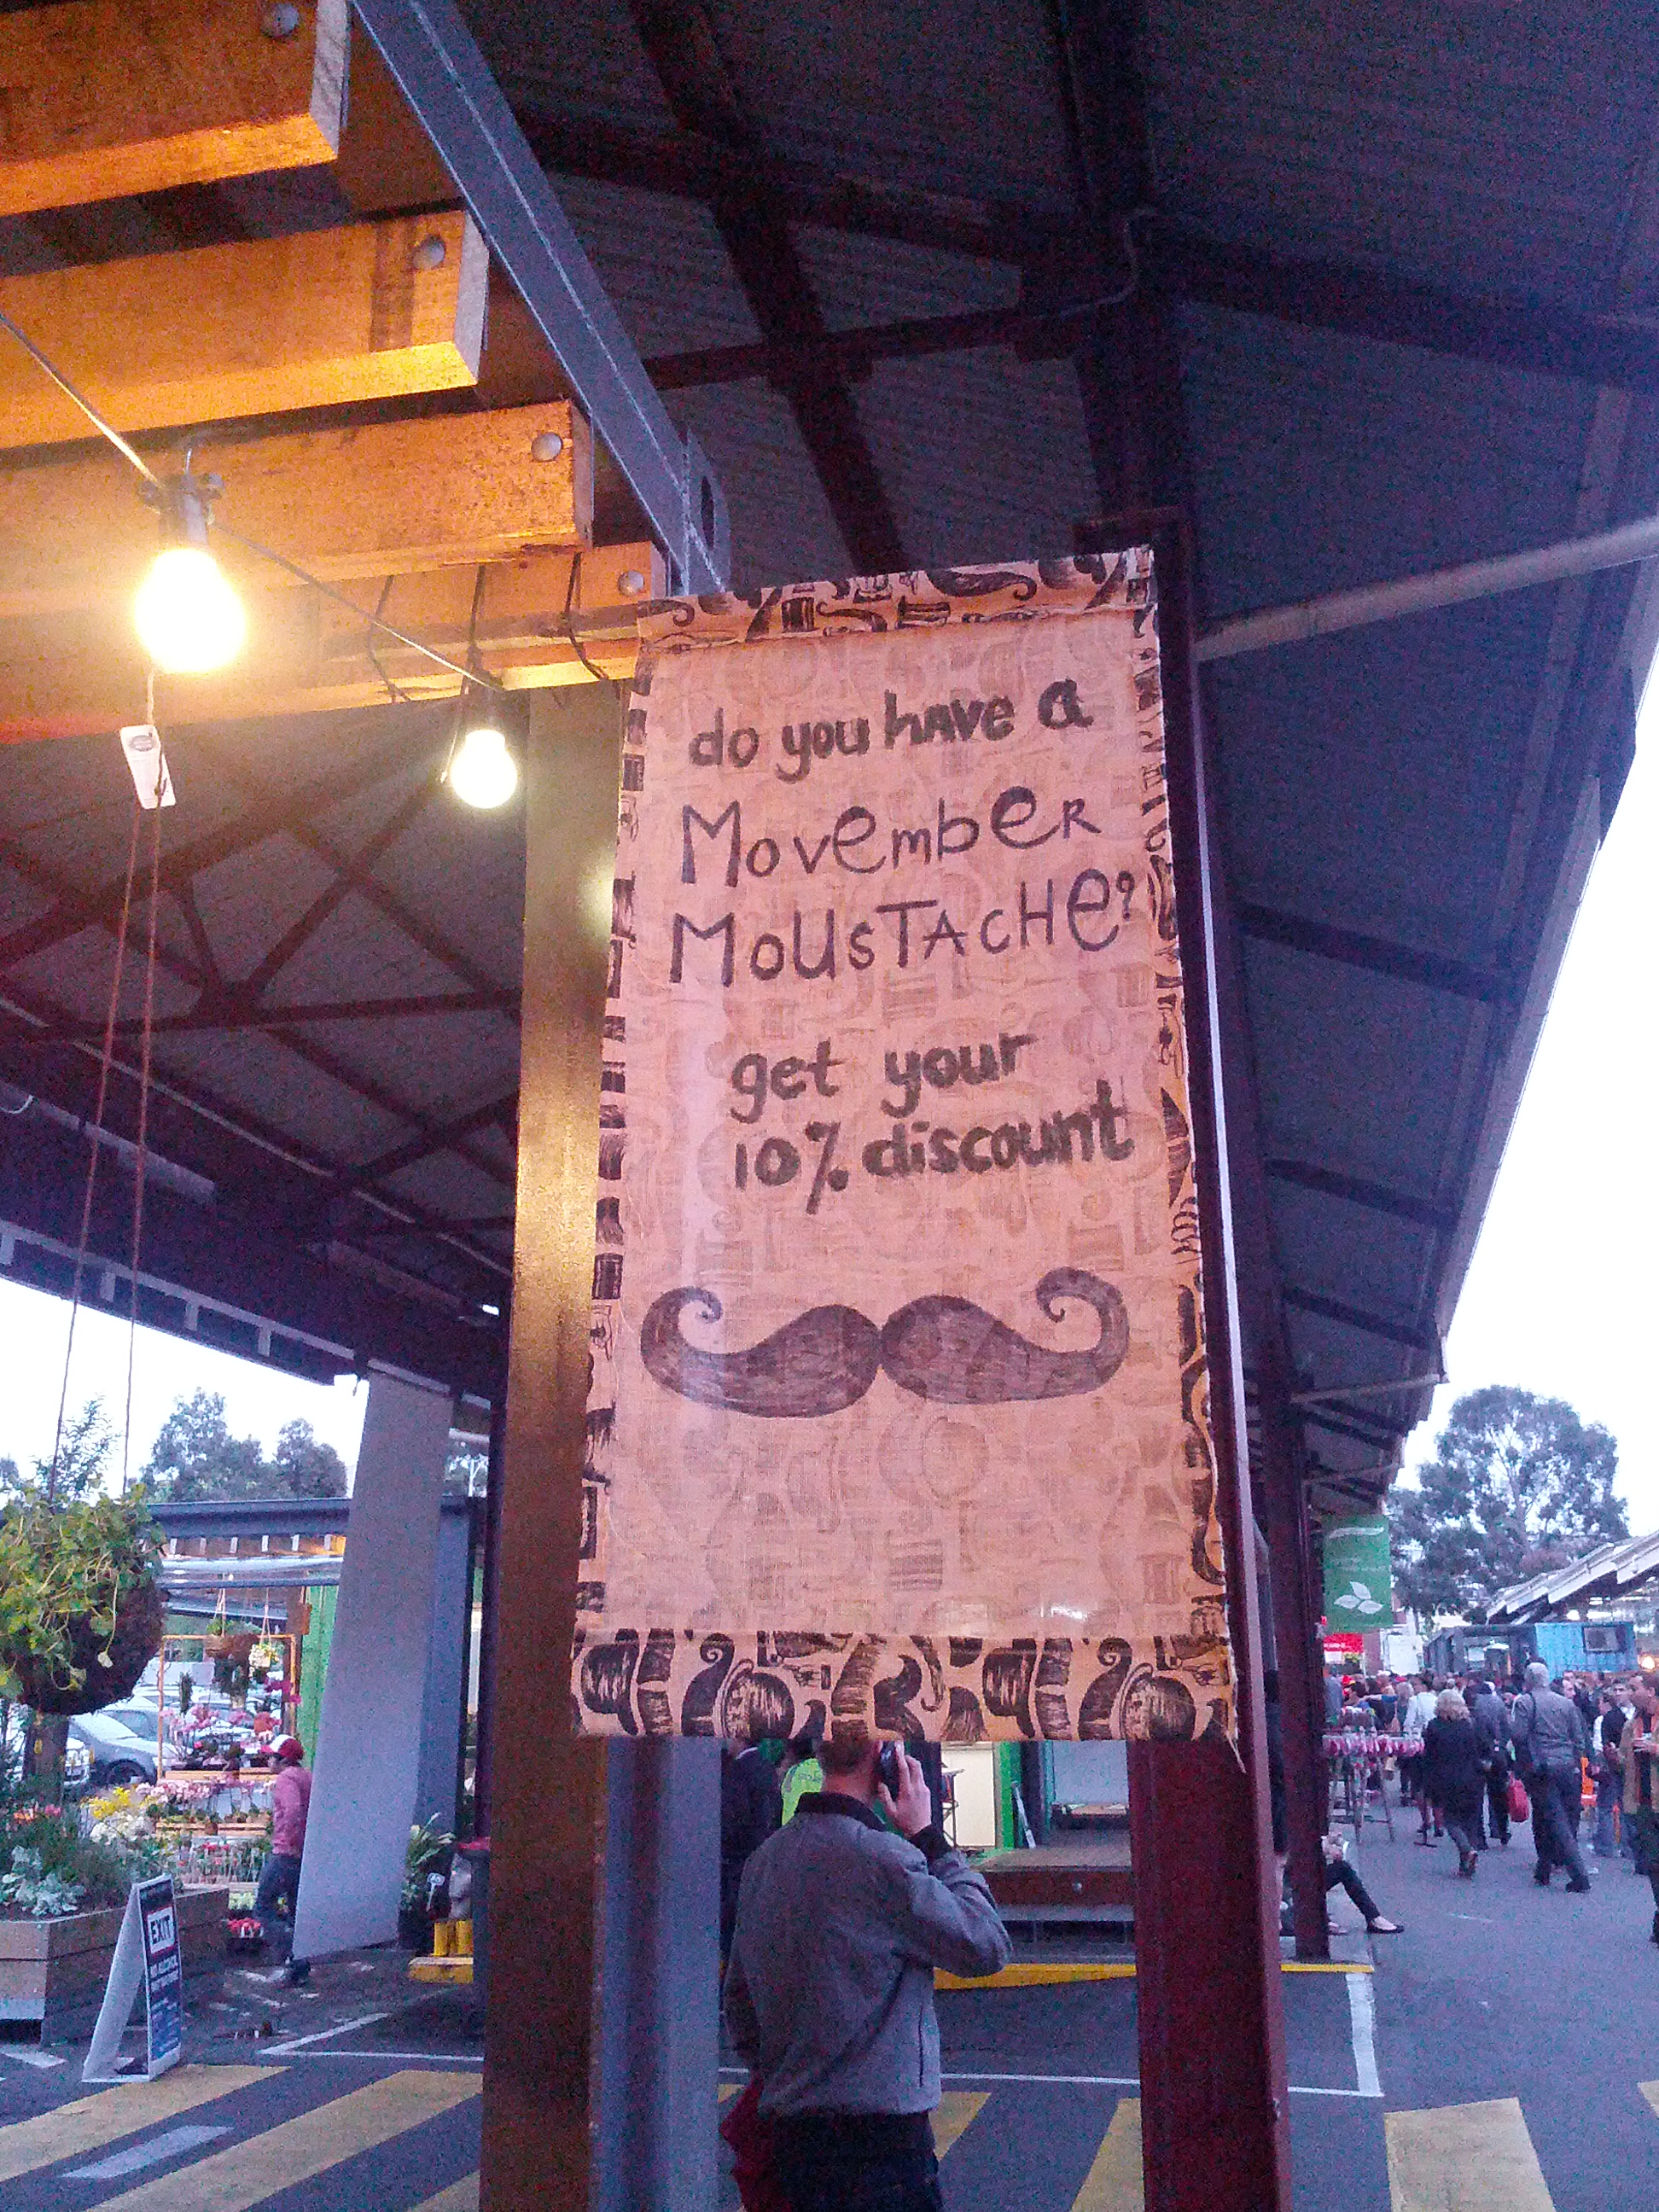 do you have a
MoveMbeR
MoUsTAcHe?
get your
10% discount
EXIT
NO ALCOHOL